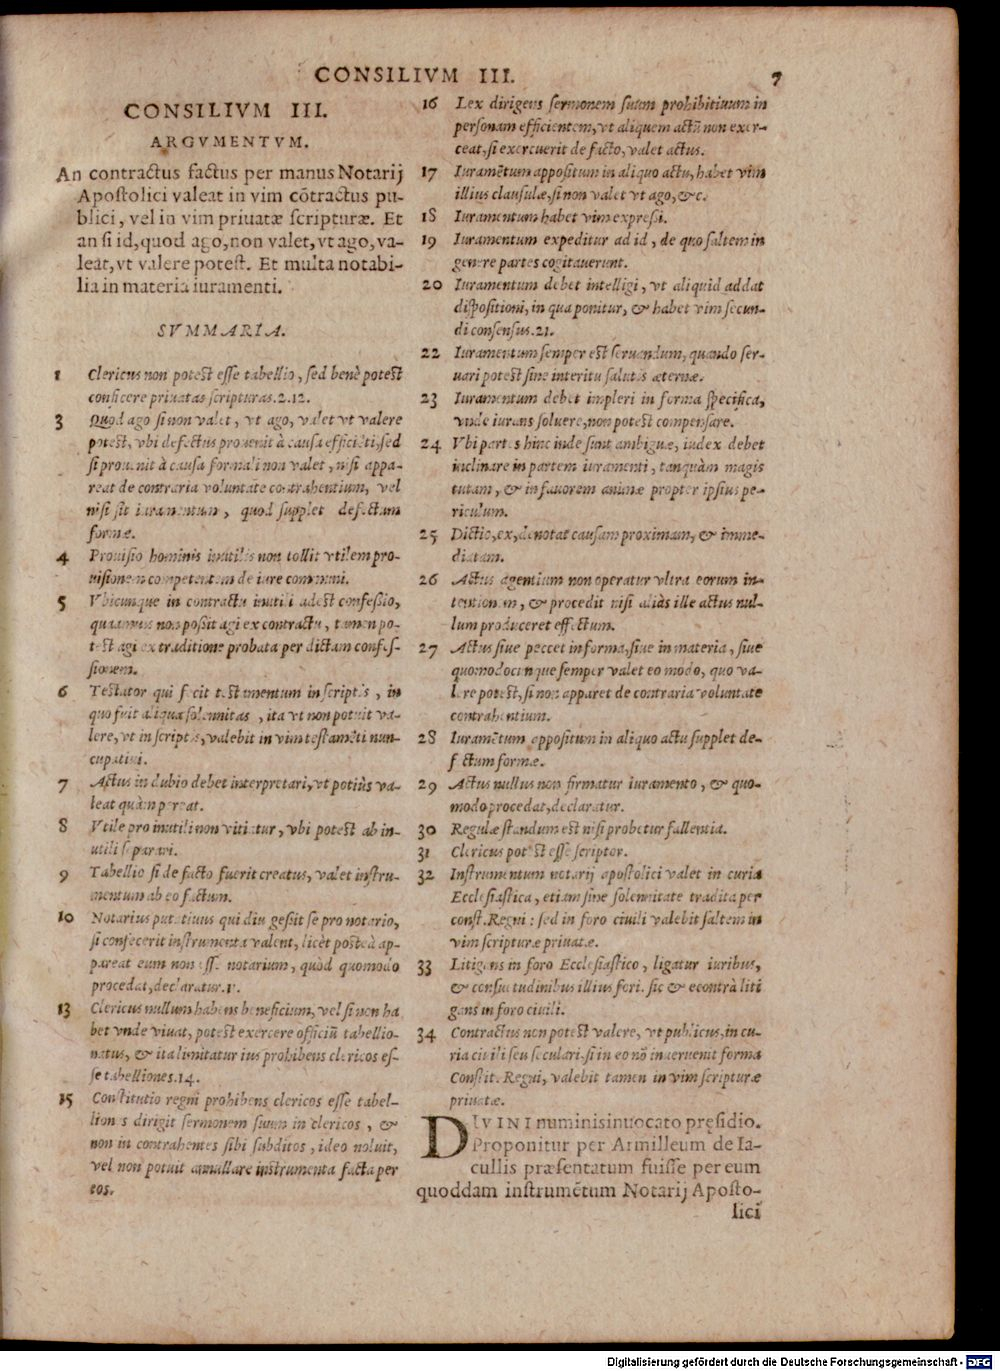 CONSILIVM III. 7
CONSILIVM III.
ARGVMENTVM.
An contractus factus per manus Notarij
Apoſtolici valeat in vim cõtractus pu-
blici, vel in vim priuatæ ſcripturæ. Et
an ſi id, quod ago, non valet, vt ago, va-
leat, vt valere poteſt. Et multa notabi-
lia in materia iuramenti.
SVMMARIA.
1 Clericus non poteſt eſſe tabellio, ſed benè poteſt
conficere priuatas ſcripturas.2.12.
3 Quod ago ſi non valet, vt ago, valet vt valere
poteſt, vbi defectus prouenit à cauſa efficiẽti, ſed
ſi prouenit à cauſa formali non valet, niſi appa-
reat de contraria voluntate contrahentium, vel
niſi ſit iuramentum, quod ſupplet defectum
formæ.
4 Prouiſio hominis inutilis non tollit vtilem pro-
uiſionem competentem de iure communi.
5 Vbicunque in contractu inutili adeſt confeſſio,
quamuis non poſſit agi ex contractu, tamen po-
teſt agi ex traditione probata per dictam confeſ-
ſionem.
6 Teſtator qui fecit teſtamentum in ſcriptis, in
quo fuit aliqua ſolennitas, ita vt non potuit va-
lere, vt in ſcriptis, valebit in vim teſtamẽti nun-
cupatiui.
7 Actus in dubio debet interpretari, vt potiùs va-
leat quàm pereat.
8 Vtile pro inutili non vitiatur, vbi poteſt ab in-
utili ſeparari.
9 Tabellio ſi de facto fuerit creatus, valet inſtru-
mentum ab eo factum.
10 Notarius putatiuus qui diu geſſit ſe pro notario,
ſi confecerit inſtrumenta valent, licèt poſteà ap-
pareat eum non eſſe notarium, quòd quomodo
procedat, declaratur.11.
13 Clericus nullum habens beneficium, vel ſi non ha
bet vnde viuat, poteſt exercere officiũ tabellio-
natus, & ita limitatur ius prohibens clericos eſ-
ſe tabelliones.14.
15 Conſtitutio regni prohibens clericos eſſe tabel-
liones dirigit ſermonem ſuum in clericos, &
non in contrahentes ſibi ſubditos, ideo noluit,
vel non potuit annullare inſtrumenta facta per
eos.
16 Lex dirigens ſermonem ſuum prohibitiuum in
perſonam efficientem, vt aliquem actũ non exer-
ceat, ſi exercuerit de facto, valet actus.
17 Iuramẽtum appoſitum in aliquo actu, habet vim
illius clauſulæ, ſi non valet vt ago, &c.
18 Iuramentum habet vim expreſſi.
19 Iuramentum expeditur ad id, de quo ſaltem in
genere partes cogitauerunt.
20 Iuramentum debet intelligi, vt aliquid addat
diſpoſitioni, in qua ponitur, & habet vim ſecun-
di conſenſus.21.
22 Iuramentum ſemper eſt ſeruandum, quando ſer-
uari poteſt ſine interitu ſalutis æternæ.
23 Iuramentum debet impleri in forma ſpecifica,
vnde iurans ſoluere, non poteſt compenſare.
24 Vbi partes hinc inde ſunt ambiguæ, iudex debet
inclinare in partem iuramenti, tanquàm magis
tutam, & in fauorem animæ propter ipſius pe-
riculum.
25 Dictio, ex, denotat cauſam proximam, & imme-
diatam.
26 Actus agentium non operatur vltra eorum in-
tentionem, & procedit niſi aliàs ille actus nul-
lum produceret effectum.
27 Actus ſiue peccet in forma, ſiue in materia, ſiue
quomodocunque ſemper valet eo modo, quo va-
lere poteſt, ſi non apparet de contraria voluntate
contrahentium.
28 Iuramẽtum appoſitum in aliquo actu ſupplet de-
fectum formæ.
29 Actus nullus non firmatur iuramento, & quo-
modo procedat, declaratur.
30 Regulæ ſtandum eſt niſi probetur fallentia.
31 Clericus poteſt eſſe ſcriptor.
32 Inſtrumentum notarij apoſtolici valet in curia
Eccleſiaſtica, etiam ſine ſolemnitate tradita per
conſt. Regni: ſed in foro ciuili valebit ſaltem in
vim ſcripturæ priuatæ.
33 Litigans in foro Eccleſiaſtico, ligatur iuribus,
& conſuetudinibus illius fori. ſic & econtrà liti
gans in foro ciuili.
34 Contractus non poteſt valere, vt publicus, in cu-
ria ciuili ſeu ſeculari, ſi in eo nõ interuenit forma
Conſtit. Regni, valebit tamen in vim ſcripturæ
priuatæ.
DIVINI numinis inuocato pręſidio.
Proponitur per Armilleum de Ia-
cullis præſentatum fuiſſe per eum
quoddam inſtrumẽtum Notarij Apoſto-
lici
Digitalisierung gefördert durch die Deutsche Forschungsgemeinschaft - DFG